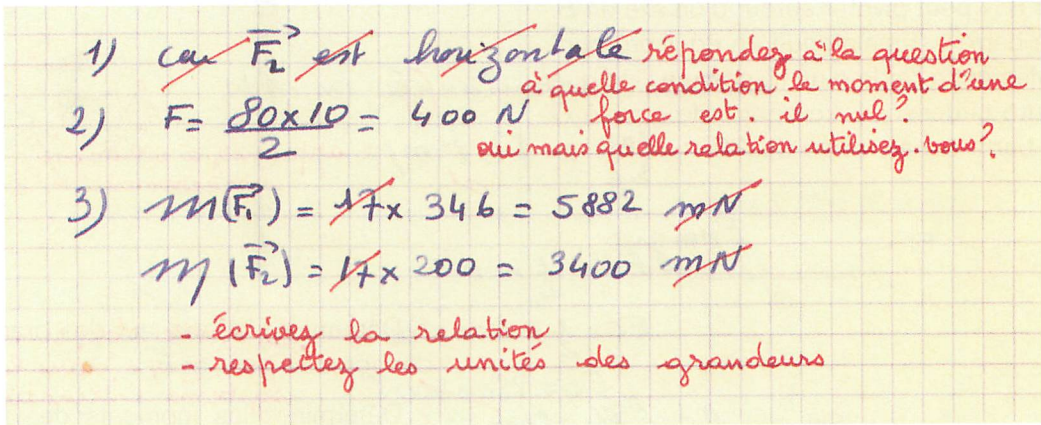 1) car F₂ est horizontale répondez à la question
à quelle condition le moment d'une
2) F = 80x10/2 = 400 N force est. il nul?
oui mais quelle relation utilisez. vous?
3) M(F₁) = 17x 346 = 5882 mN
M(F₂) = 17x 200 = 3400 mN
- écrivez la relation
- respectez les unités des grandeurs